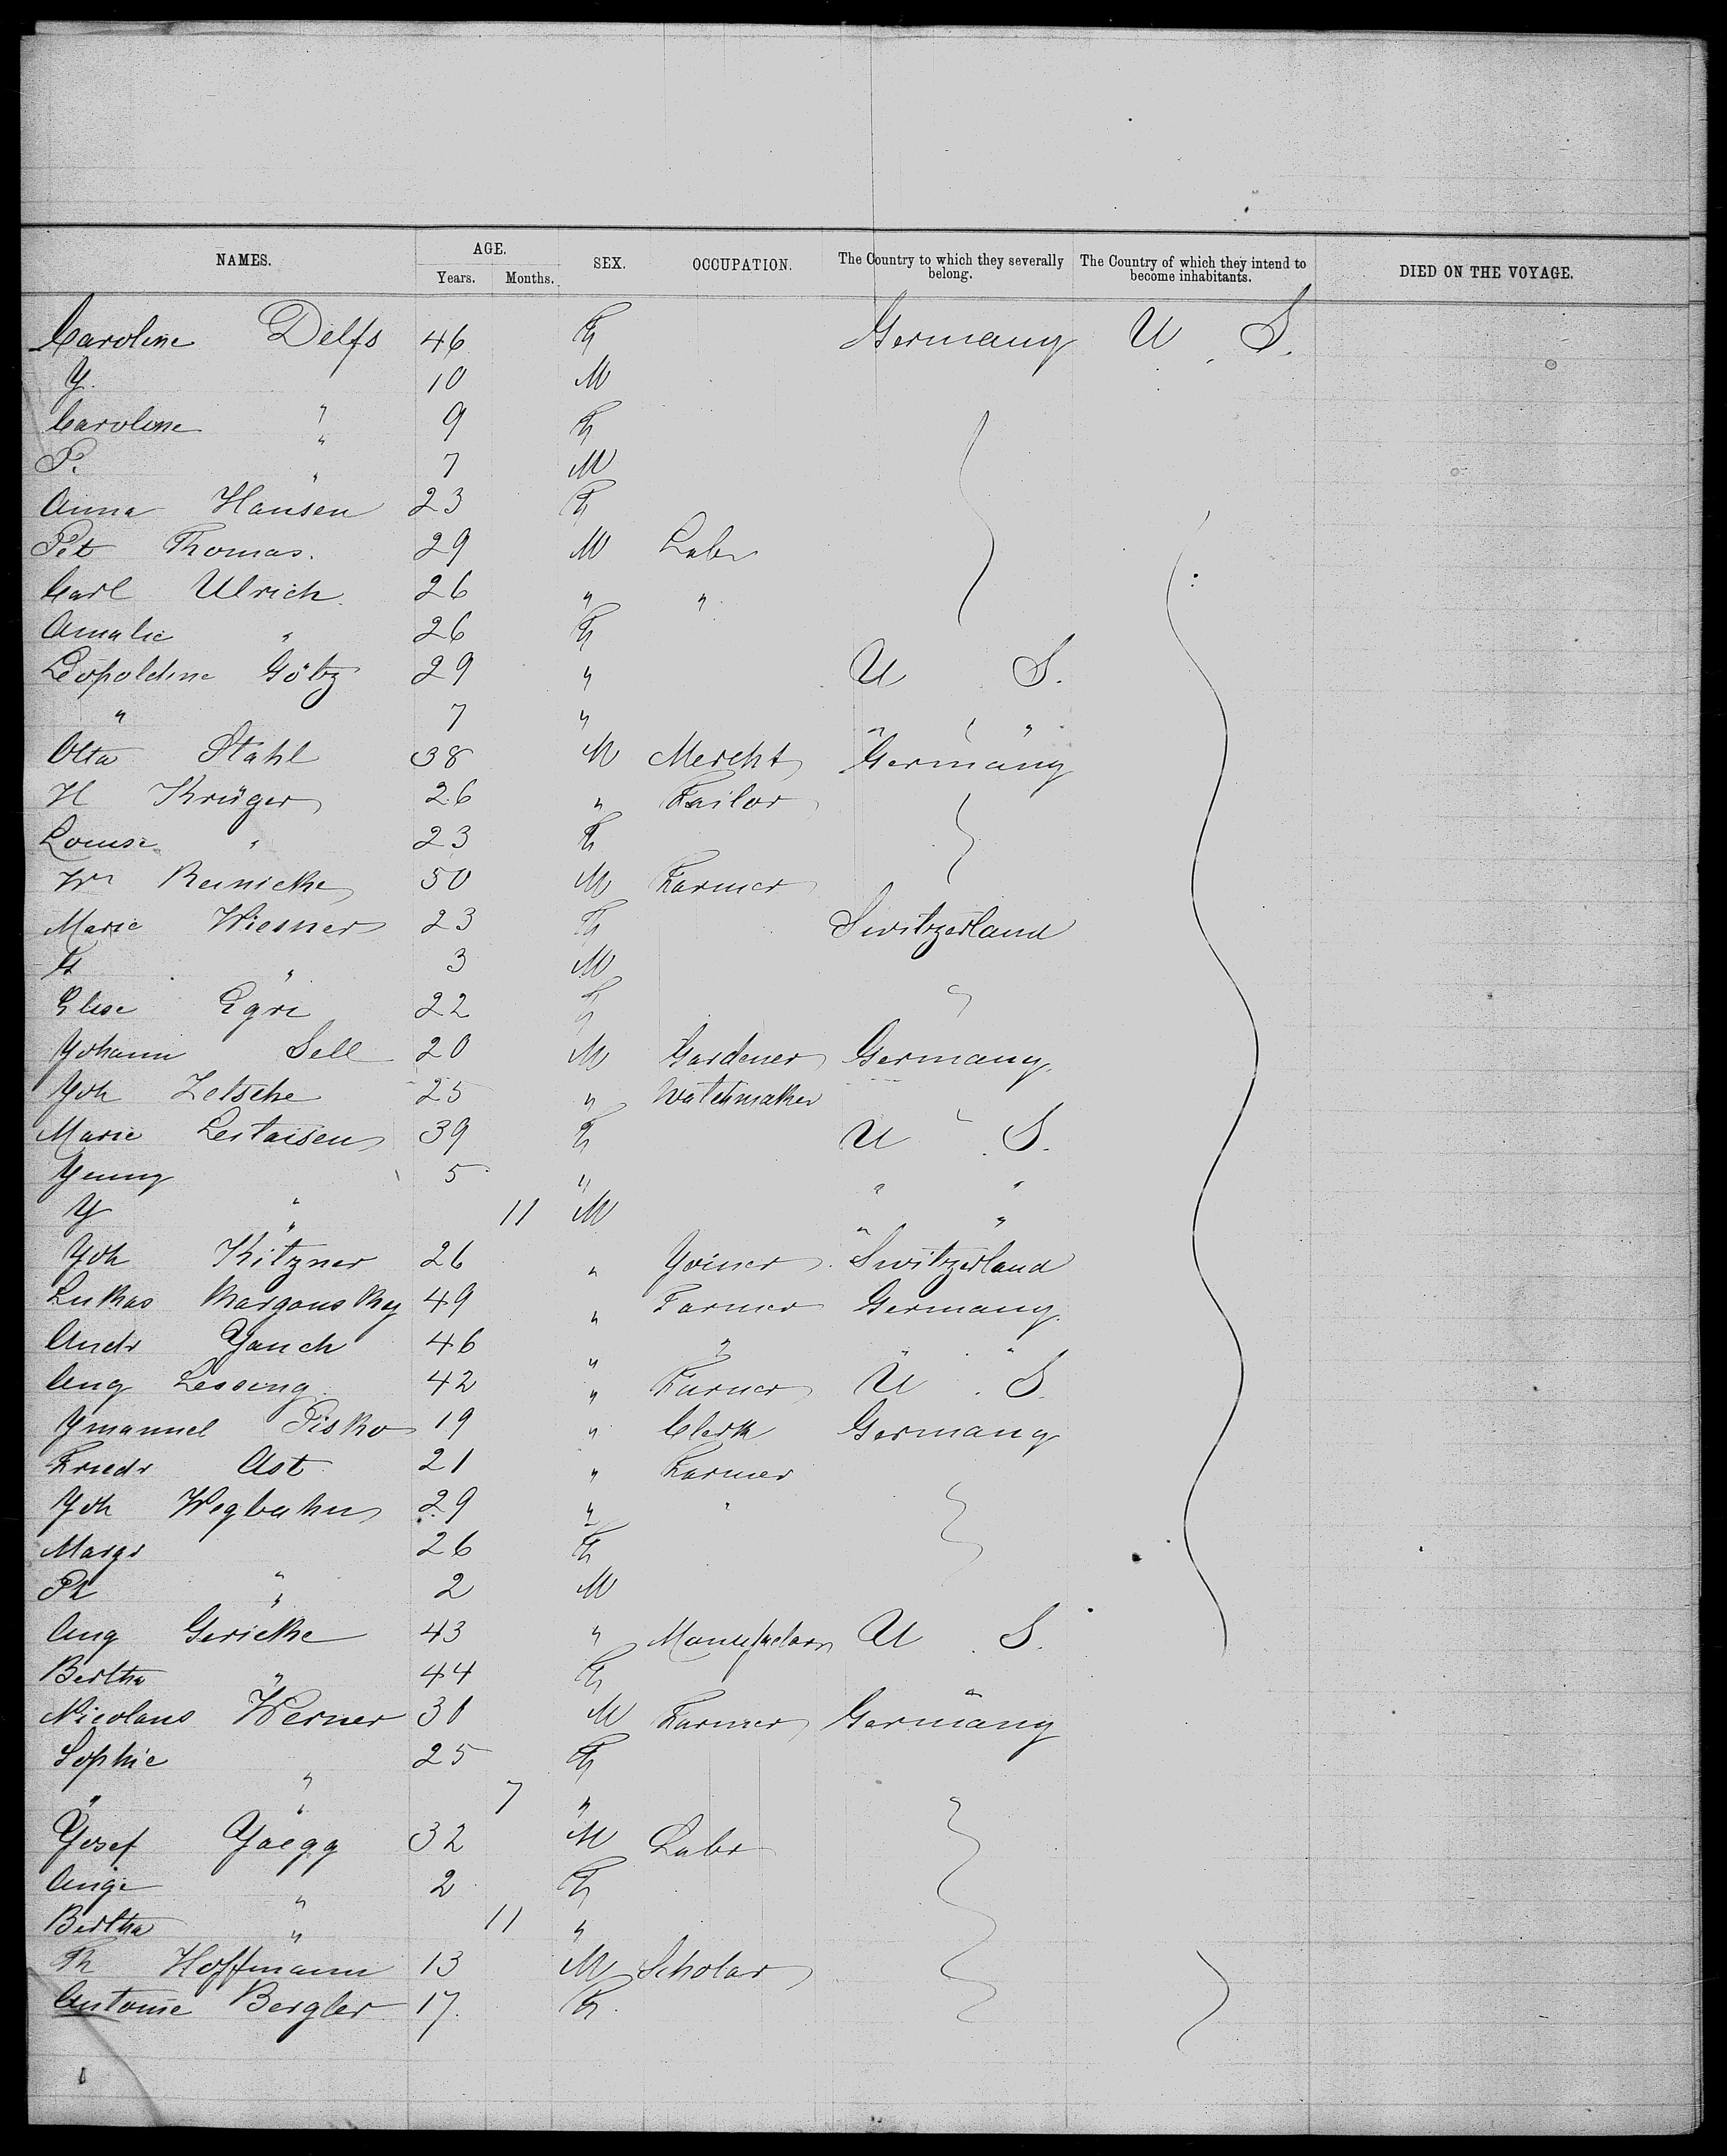 NAMES. AGE. SEX. OCCUPATION. The Country to which they severally belong. The Country of which they intend to become inhabitants. DIED ON THE VOYAGE.
Years. Months.
Caroline Delfs 46 F Germany U. S.
Y. " 10 M
Caroline " 9 F
P. " 7 M
Anna Hansen 23 F
Pet Thomas. 29 M Labr
Carl Ulrich 26 " "
Amalie " 26 F
Leopoldine Götz 29 " U S.
" 7 " " "
Otta Stahl 38 M Mercht Germany
H Krüger 26 " Tailor
Louise " 23 F
Wm Reinicke 50 M Farmer
Marie Wiesner 23 F Switzerland
Fr " 3 M
Elise Egri 22 F "
Yohann Sell 20 M Gardener Germany.
Yoh Zetsche 25 " Watchmaker "
Marie Lestaisen 39 F U S.
Yenny " 5 " " "
Y " 11 M " "
Yoh Kitzner 26 " Yoiner Switzerland
Lukas Margonsky 49 " Farmer Germany.
Andr Yanch 46 " " " "
Aug Lessing 42 " Farmer U. S.
Ymanuel Pisko 19 " Clerk Germany
Friedr Ast 21 " Farmer
Yoh Wegbahn 29 " "
Margr " 26 F
Ph " 2 M
Aug Gericke 43 " Manufactorr U S.
Bertha " 44 F "
Nicolaus Werner 31 M Farmer Germany
Sophie " 25 F
" " 7 "
Yosef Yaegg 32 M Labr
Auge " 2 F
Bertha " 11 "
Th Hoffmann 13 M Scholar
Antonie Bergler 17. F.